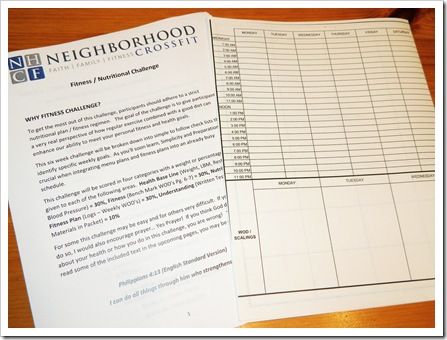 NH
CF
NEIGHBORHOOD
FAITH | FAMILY | FITNESS CROSSFIT
Fitness / Nutritional Challenge
WHY FITNESS CHALLENGE?
To get the most out of this challenge, participants should adhere to a strict
nutritional plan / fitness regimen. The goal of the challenge is to give participant
a very real perspective of how regular exercise combined with a good diet can
enhance our ability to meet your personal fitness and health goals.
This six week challenge will be broken down into simple to follow check lists th
identify specific weekly goals. As you'll soon learn, Simplicity and Preparation
crucial when integrating menu plans and fitness plans into an already busy
schedule.
This challenge will be scored in four categories with a weight or percentag
given to each of the following areas. Health Base Line (Weight, LBM, Rest
Blood Pressure) = 30%, Fitness (Bench Mark WOD's Pg. 6-7) = 30%, Nutri
Fitness Plan (Logs – Weekly WOD's) = 30%, Understanding (Written Tes
Materials in Packet) = 10%
For some this challenge may be easy and for others very difficult. If y
do so, I would also encourage prayer... Yes Prayer! If you think God d
about your health or how you do in this challenge, you are wrong!
read some of the included text in the upcoming pages, you may be
Philippians 4:13 (English Standard Version)
I can do all things through him who strengthens
1
MONDAY TUESDAY WEDNESDAY THURSDAY FRIDAY SATUR
MIDNIGHT
1:00 AM
2:00 AM
3:00 AM
4:00 AM
5:00 AM
6:00 AM
7:00 AM
8:00 AM
9:00 AM
10:00 AM
11:00 AM
NOON
1:00 PM
2:00 PM
3:00 PM
4:00 PM
5:00 PM
6:00 PM
7:00 PM
8:00 PM
9:00 PM
10:00 PM
11:00 PM
MONDAY TUESDAY WEDNESDAY THURSDAY
WOD /
SCALINGS